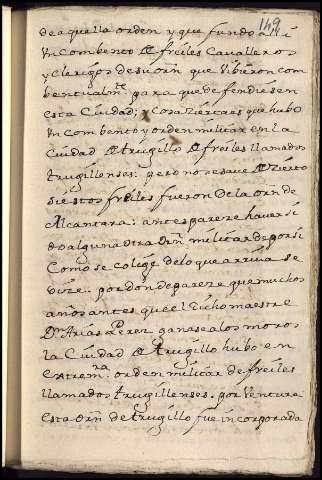 149
de aquella orden y que fundo alli
Un combento de freiles Cavalleros
y clerigos de su orñ que vibieron com
bentualm.te para que defendiesen
esta Ciudad; y Cosa ziertaes que hubo
Un combento y orden militar en la
Ciudad de trugillo de freiles llamados
trugillenses: pero no se save de zierto
si estos freiles fueron de la orñ de
Alcantara: antes pareze haver si
do alguna otra orñ militar de por si
Como se colige de lo que arriva se
dize: por donde pareze que muchos
años antes que el dicho maestre
Dn Arias Perez ganase a los moros
la Ciudad de trugillo hubo en
extrem.ra orden militar de freiles
llamados trugillenses. por ventura
esta orñ de trugillo fue incorporada